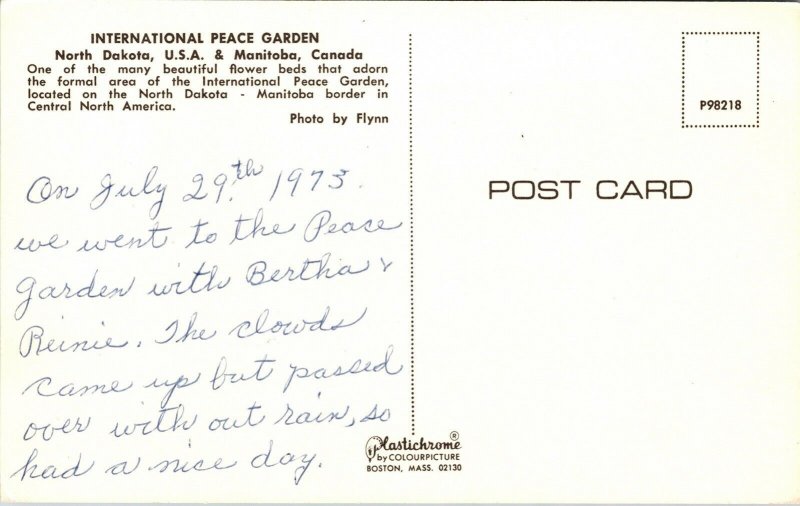 INTERNATIONAL PEACE GARDEN
North Dakota, U.S.A. & Manitoba, Canada
One of the many beautiful flower beds that adorn
the formal area of the International Peace Garden,
located on the North Dakota - Manitoba border in
Central North America.
Photo by Flynn
On July 29th. 1973.
we went to the Peace
Garden with Bertha &
Reinie. The clowds
came up but passed
over with out rain, so
had a nice day.
P98218
POST CARD
Plastichrome®
by COLOURPICTURE
BOSTON, MASS. 02130